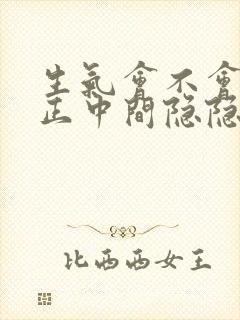 生氣會不會
正中間隐隐
比西西女王